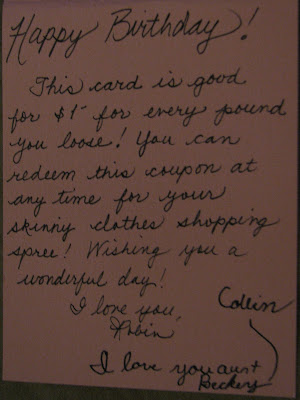 Happy Birthday!
This card is good
for $1- for every pound
you loose! You can
redeem this coupon at
any time for your
skinny clothes shopping
spree! Wishing you a
wonderful day!
I love you,
Robin
Collin
I love you aunt
Beckery